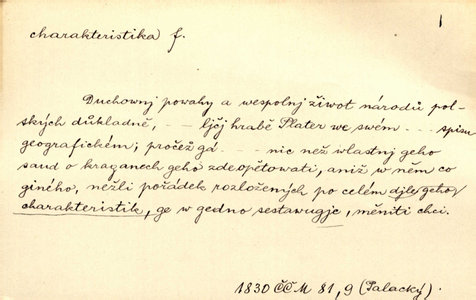 1
charakteristika f.
Duchownj powahy a wespolnj život národů pol-
ských důkladně, - - ljčj hrabě Plater we swém - - - spisu
geografickém; pročež gá - - - nic než wlastnj geho
saud o kraganech geho zdeopětowati, aniž w něm co
giného, nežli pořádek rozložených po celém djle geho
charakteristik, ge w gedno sestawugje, měniti chci.
1830 ČČM 81, 9 (Palacký).